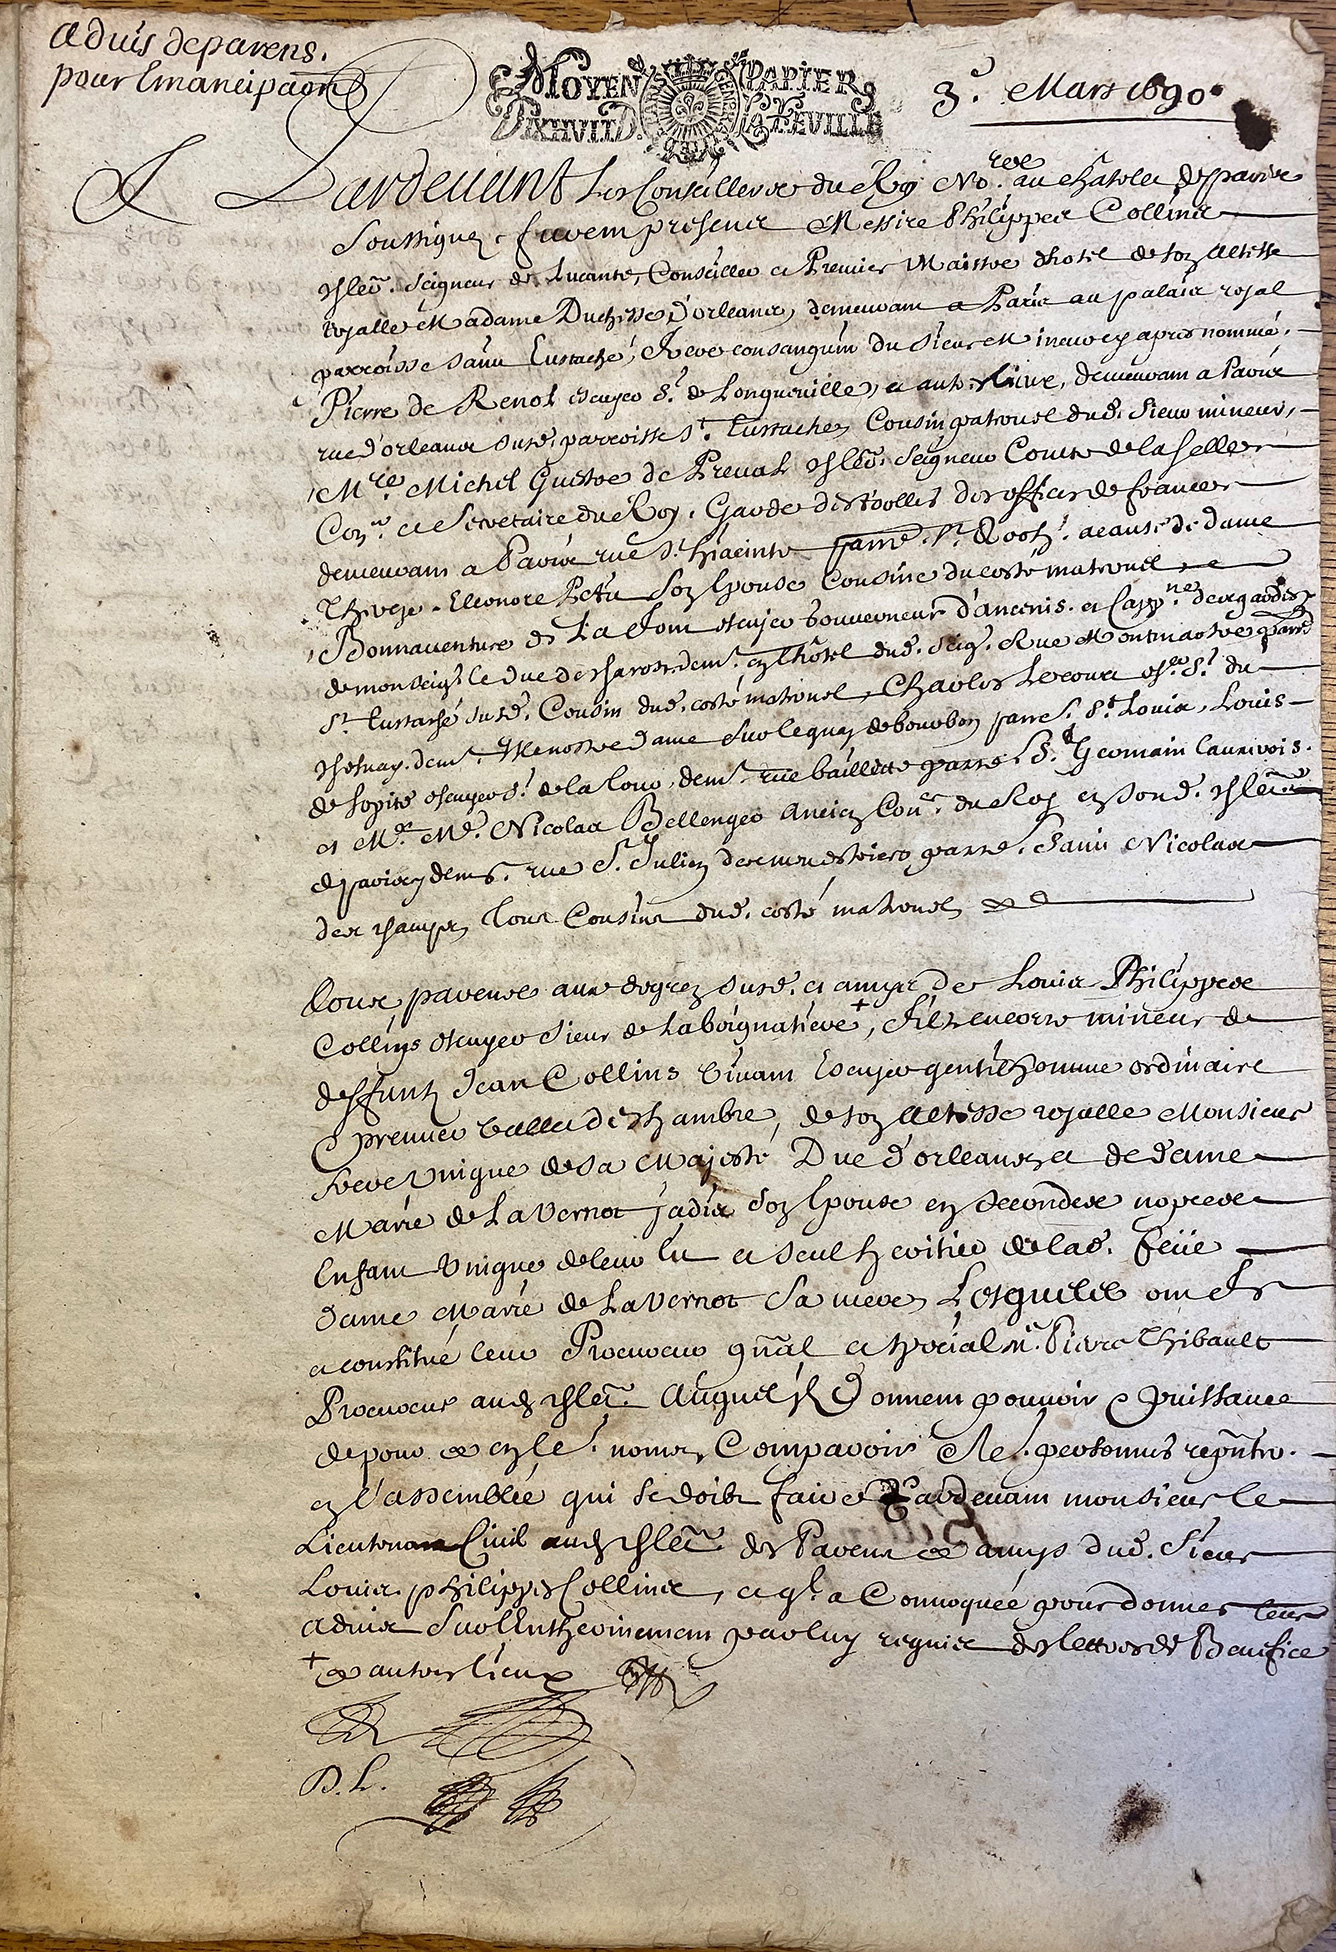 Aduis de parens.
pour Emancipaōn
MOYEN PAPIER
DIXHUIT D. LA FEUILLE
3.e Mars 1690
Pardeuant Les Conseillers du Roy No.res au châtelet de Paris
Soussignez, furent presens Messire Philippes Collins
chler. Seigneur de Lucante, Conseiller et Premier Maistre dhotel de son Altesse
royalle Madame Duchesse D'orleans, demeurant a Paris au palais royal
parroisse saint Eustache, frere consanguin du sieur Mineur cy apres nommé.
Pierre de Renol escuyer Sr. de Longueuille, et autres lieux, demeurant a Paris
rue d'orleans susd. parroisse St. Eustache, Cousin paternel dud. sieur mineur,
Mre. Michel Questre de Preual chler. Seigneur Comte de la selle
Con.er et Secretaire du Roy. Garde des Roolles des offices de france
demeurant a Paris rue St. hiacinte parre. St. Roch. a cause de dame
Therese Eleonore Petit son Epouse Cousine du costé maternel
Bonnauenture de La fom escuyer Gouuerneur d'ancenis. et Capp.ne des gardes
de monseigr. le duc de charost dem.t en l'hôtel dud. seigr. Rue Montmartre parre.
St. Eustache susd. Cousin dud. costé maternel, Charles Lecourt esr. Sr. du
chesnay. dem.t Rue nostre dame sur le quay de bourbon parre. St. Louis, Louis
de hopité escuyer Sr. de la Cour, dem.t rue baillette parre. St. Germain lauxerois.
et Mre. Me. Nicolas Bellenger ancien Con.er du Roy en son d. chlet.
de paris, dem.t rue St. Julien des menestriers parre. Saint Nicolas
des champs, Tous Cousins dud. costé maternel
Tous parens aux degrez susd. et amys de Louis Philippes
Collins escuyer sieur de Laboignatiere +, fils encore mineur de
deffunt Jean Collins viuant Escuyer gentilhomme ordinaire
et premier vallet de chambre, de son Altesse royalle Monsieur
frere vnique de sa Majesté Duc d'orleans et de dame
Marie de La Vernot jadis son Epouse en secondes nopces
Enfant Vnique de leur lit et seul heritier de lad. feüe
dame Marie de La Vernot sa mere, Lesquels ont fait
et constitué leur Procureur gñal et special Me. Pierre Thibault
Procureur aud. chlet. Auquel ils Donnent pouuoir et puissance
de pour eux et en le. noms Comparoir et le. personnes repñter.
en l'assemblée qui se doibt faire Pardeuant monsieur le
Lieutenant Ciuil aud. chlet. des Parens et amys dud. sieur
Louis philippes Collins, et ql. a Conuoquée pour donner leurs
aduis sur l'Entherinement par luy requis des lettres de Benefice
+ et autres lieux
D. L.